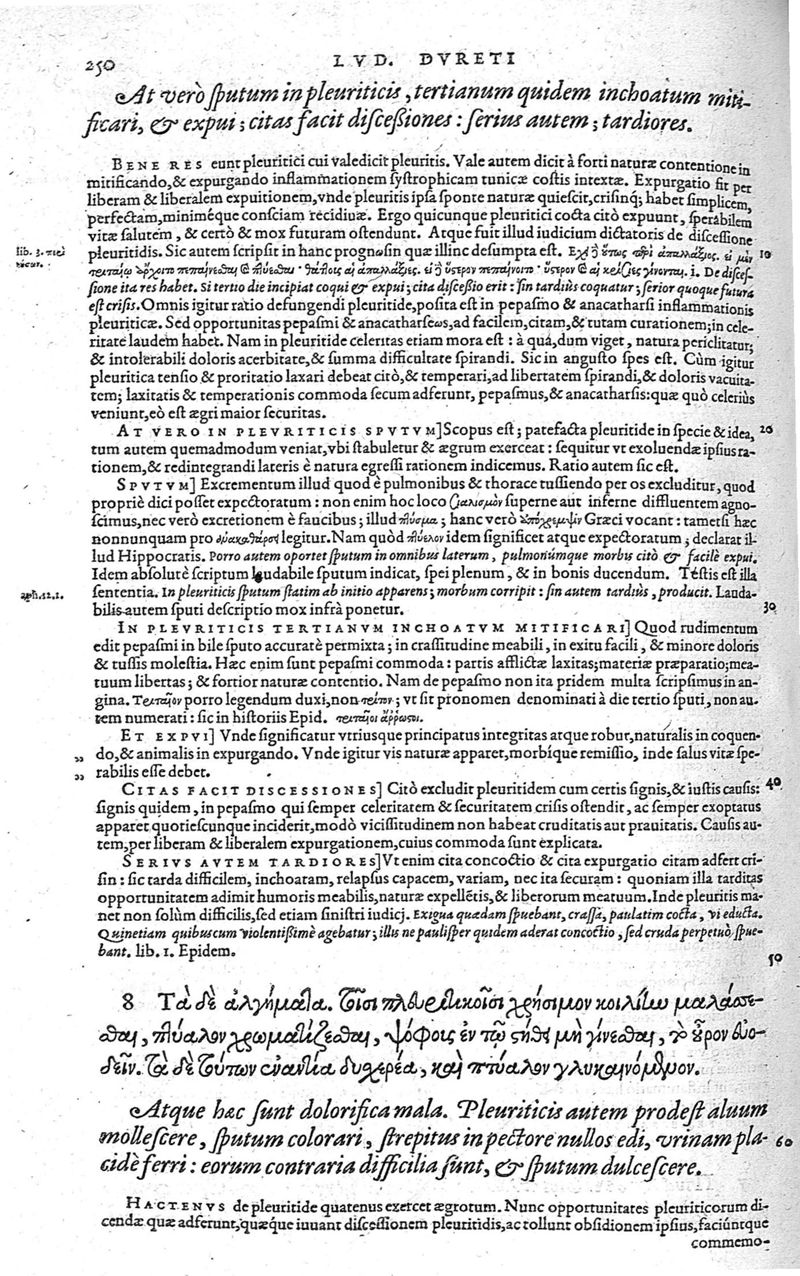 250
LVD. DVRETI
At verò sputum in pleuriticis, tertianum quidem inchoatum miti-
ficari, & expui; citas facit discessiones: serius autem; tardiores.
BENE RES eunt pleuritici cui valedicit pleuritis. Vale autem dicit à forti naturæ contentione in
mitificando, & expurgando inflammationem systrophicam tunicæ costis intextæ. Expurgatio fit per
liberam & liberalem expuitionem, vnde pleuritis ipsa sponte naturæ quiescit, crisinq; habet simplicem,
perfectam, miniméque consciam recidiuæ. Ergo quicunque pleuritici cocta citò expuunt, sperabilem
vitæ salutem, & certò & mox futuram ostendunt. Atque fuit illud iudicium dictatoris de discessione
lib. 3. πτισ
pleuritidis. Sic autem scripsit in hanc prognosin quæ illinc desumpta est.
10
i. De disces-
sione ita res habet. Si tertio die incipiat coqui & expui; cita discessio erit: sin tardiùs coquatur; serior quoque futura
est crisis. Omnis igitur ratio defungendi pleuritide, posita est in pepasmo & anacatharsi inflammationis
pleuriticæ. Sed opportunitas pepasmi & anacatharseωs, ad facilem, citam, & tutam curationem; in cele-
ritate laudem habet. Nam in pleuritide celeritas etiam mora est: à quá, dum viget, natura periclitatur;
& intolerabili doloris acerbitate, & summa difficultate spirandi. Sic in angusto spes est. Cùm igitur
pleuritica tensio & proritatio laxari debeat citò, & temperari, ad libertatem spirandi, & doloris vacuita-
tem; laxitatis & temperationis commoda secum adferunt, pepasmus, & anacatharsis: quæ quò celeriùs
veniunt, eò est ægri maior securitas.
AT VERO IN PLEVRITICIS SPVTVM] Scopus est; patefacta pleuritide in specie & idea,
20
tum autem quemadmodum veniat, vbi stabuletur & ægrum exerceat: sequitur vt exoluendæ ipsius ra-
tionem, & redintegrandi lateris è natura egressi rationem indicemus. Ratio autem sic est.
SPVTVM] Excrementum illud quod è pulmonibus & thorace tussiendo per os excluditur, quod
propriè dici posset expectoratum: non enim hoc loco σιαλισμὸν superne aut inferne diffluentem agno-
scimus, nec verò excretionem è faucibus; illud πτύσμα; hanc verò ἀπόχρεμψιν Græci vocant: tametsi hæc
nonnunquam pro ἀνακαθάρσει legitur. Nam quòd πτύελον idem significet atque expectoratum; declarat il-
lud Hippocratis. Porro autem oportet sputum in omnibus laterum, pulmonúmque morbis citò & facilè expui.
Idem absolutè scriptum laudabile sputum indicat, spei plenum, & in bonis ducendum. Téstis est illa
aph. 12. 1.
sententia. In pleuriticis sputum statim ab initio apparens; morbum corripit: sin autem tardiùs, producit. Lauda-
bilis autem sputi descriptio mox infrà ponetur.
30
IN PLEVRITICIS TERTIANVM INCHOATVM MITIFICARI] Quod rudimentum
edit pepasmi in bile sputo accuratè permixta; in crassitudine meabili, in exitu facili, & minore doloris
& tussis molestia. Hæc enim sunt pepasmi commoda: partis afflictæ laxitas; materiæ præparatio; mea-
tuum libertas; & fortior naturæ contentio. Nam de pepasmo non ita pridem multa scripsimus in an-
gina. Τριταῖον porro legendum duxi, non τρίτον; vt sit pronomen denominati à die tertio sputi, non au-
tem numerati: sic in historiis Epid. τριταῖοι ἄῤῥωστοι.
ET EXPVI] Vnde significatur vtriusque principatus integritas atque robur, naturalis in coquen-
„ do, & animalis in expurgando. Vnde igitur vis naturæ apparet, morbíque remissio, inde salus vitæ spe-
„ rabilis esse debet.
CITAS FACIT DISCESSIONES] Citò excludit pleuritidem cum certis signis, & iustis causis:
40
signis quidem, in pepasmo qui semper celeritatem & securitatem crisis ostendit, ac semper exoptatus
apparet quotiescunque inciderit, modò vicissitudinem non habeat cruditatis aut prauitatis. Causis au-
tem, per liberam & liberalem expurgationem, cuius commoda sunt explicata.
SERIVS AVTEM TARDIORES] Vt enim cita concoctio & cita expurgatio citam adfert cri-
sin: sic tarda difficilem, inchoatam, relapsus capacem, variam, nec ita securam: quoniam illa tarditas
opportunitatem adimit humoris meabilis, naturæ expellentis, & liberorum meatuum. Inde pleuritis ma-
net non solùm difficilis, sed etiam sinistri iudicij. Exigua quædam spuebant, crassa, paulatim cocta, vi educta.
Quinetiam quibuscum violentissimè agebatur; illis ne paulisper quidem aderat concoctio, sed cruda perpetuò spue-
bant. lib. 1. Epidem.
50
8 Τὰ δὲ ἀλγήματα. Τοῖσι πλευριτικοῖσι χρήσιμον κοιλίην μαλάσσε-
σθαι, πτύαλον χρωματίζεσθαι, ψόφοις ἐν τῷ στήθει μὴ γίνεσθαι, τὸ οὖρον εὐο-
δεῖν. Τὰ δὲ τούτων ἐναντία δυχερέα, καὶ πτύαλον γλυκαινόμενον.
Atque hæc sunt dolorifica mala. Pleuriticis autem prodest aluum
mollescere, sputum colorari, strepitus in pectore nullos edi, vrinam pla-
60
cidè ferri: eorum contraria difficilia sunt, & sputum dulcescere.
HACTENVS de pleuritide quatenus exercet ægrotum. Nunc opportunitates pleuriticorum di-
cendæ quæ adferunt, quæque iuuant discessionem pleuritidis, ac tollunt obsidionem ipsius, faciúntque
commemo-